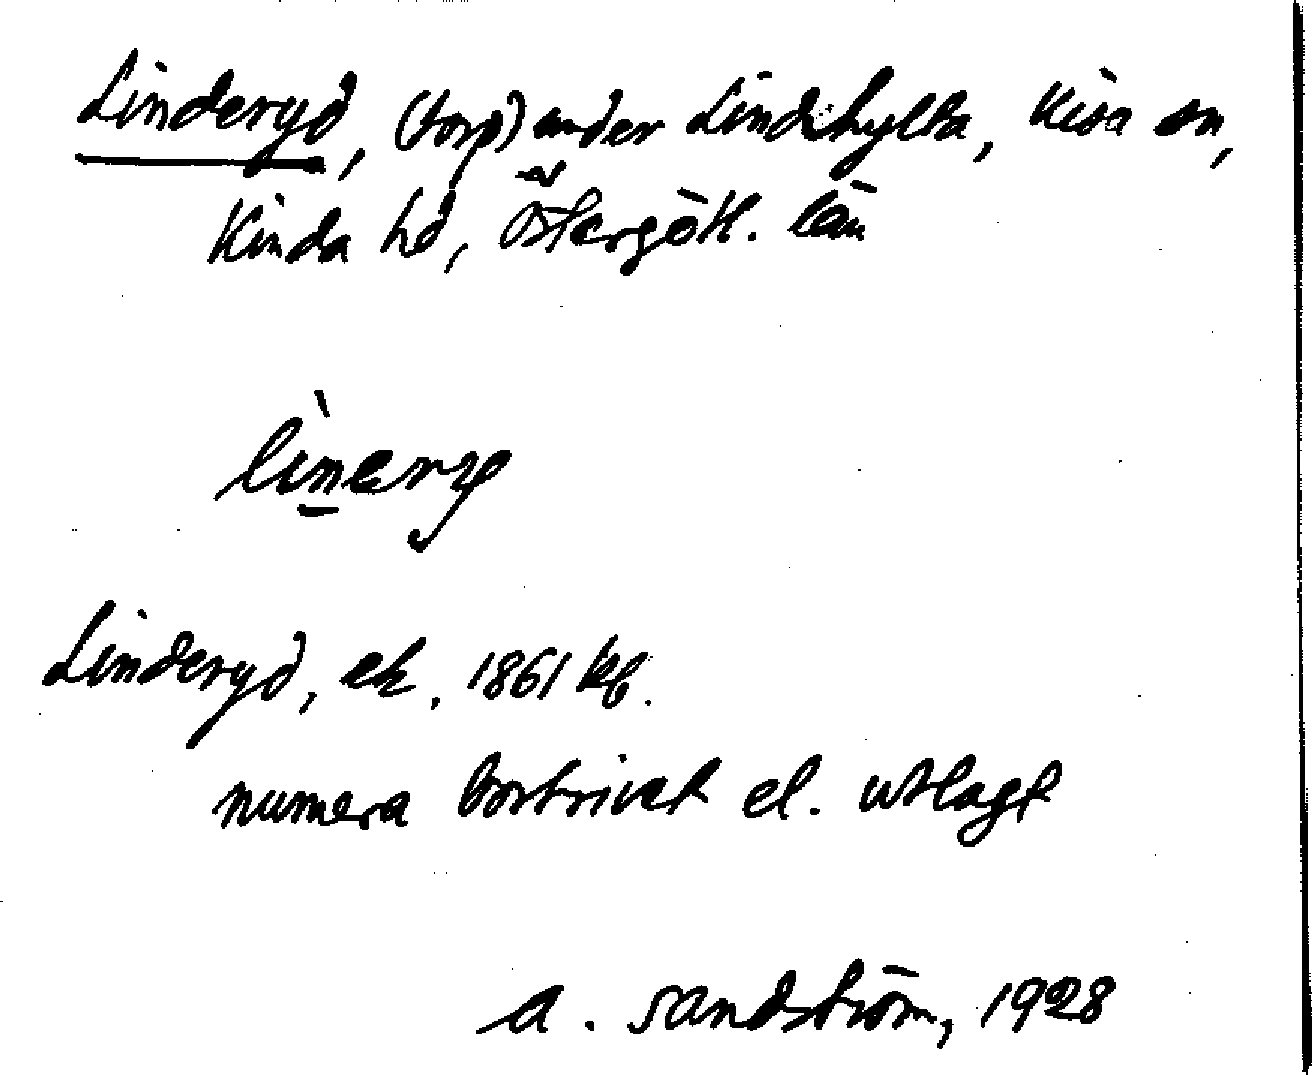 Linderyd, (torp) under Lindhylta, Kisa sn,
Kinda hd, Östergötl. län
lìnery
Linderyd, ek. 1861 kb.
numera bortrivet el. utlagt
A. Sandström, 1928